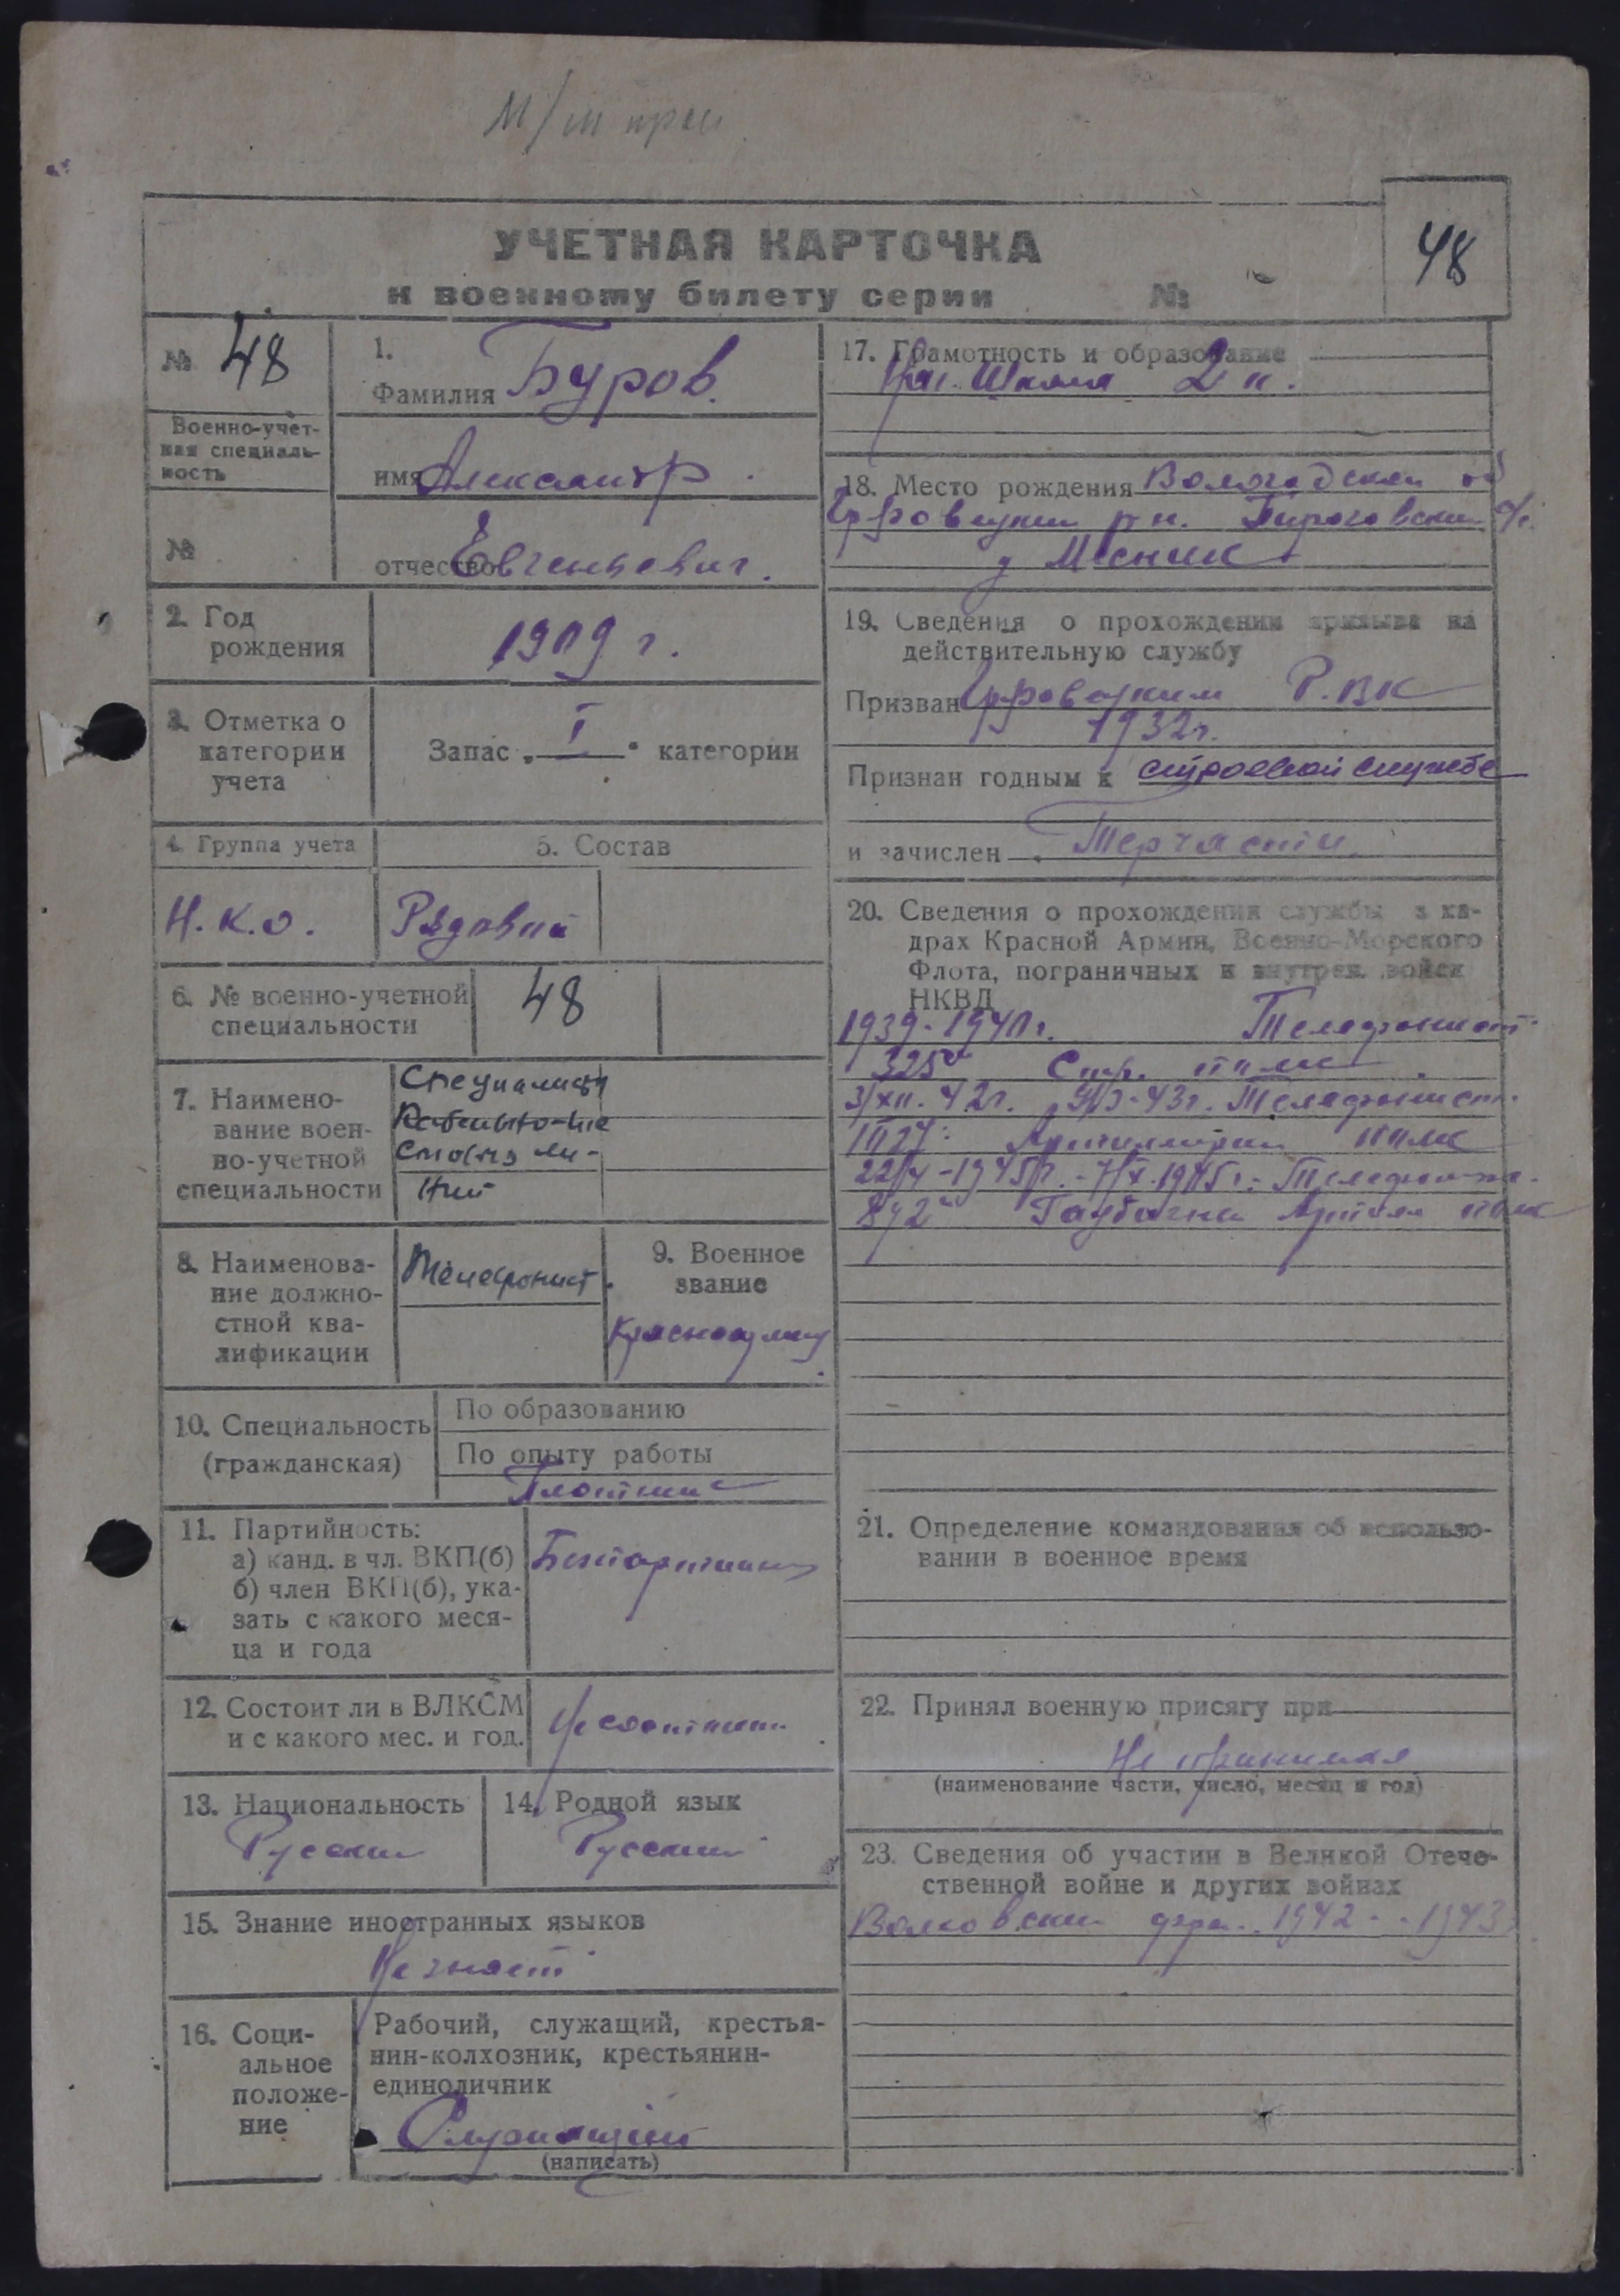 УЧЕТНАЯ КАРТОЧКА
к военному билету серии №
48
№ 48
Военно-учет-
ная специаль-
ность
№
1.
Фамилия Буров.
имя Александр.
отчество Евгеньевич.
2. Год
рождения
1909 г.
3. Отметка о
категории
учета
Запас „ I “ категории
4. Группа учета
Н.К.О.
5. Состав
Рядовой
6. № военно-учетной
специальности
48
7. Наимено-
вание воен-
но-учетной
специальности
Специалисты
Кабельно-
8. Наименова-
ние должно-
стной ква-
лификации
Телефонист.
9. Военное
звание
10. Специальность
(гражданская)
По образованию
По опыту работы
Плотник
11. Партийность:
а) канд. в чл. ВКП(б)
б) член ВКП(б), ука-
зать с какого меся-
ца и года
12. Состоит ли в ВЛКСМ
и с какого мес. и год.
13. Национальность
Русский
14. Родной язык
Русский
15. Знание иностранных языков
Не знает
16. Соци-
альное
положе-
ние
Рабочий, служащий, крестья-
нин-колхозник, крестьянин-
единоличник
Служащий
(написать)
17. Грамотность и образование
Нач. Школа 2 к.
18. Место рождения Вологодская об
рн.
д
19. Сведения о прохождении призыва на
действительную службу
Призван Р.ВК
1932г.
Признан годным к строевой службе
и зачислен Терчасти.
20. Сведения о прохождении службы в ка-
драх Красной Армии, Военно-Морского
Флота, пограничных и внутрен. войск
НКВД
1939-1940г. Телефонист
325й Стр. полк.
3/XII.42г. 43г. Телефонист.
полк
1945г. Телефонист.
Гаубичн. Артил. полк
21. Определение командования об использо-
вании в военное время
22. Принял военную присягу при
Не принимал
(наименование части, число, месяц и год)
23. Сведения об участии в Великой Отече-
ственной войне и других войнах
Волховский фр. 1942 - 1943